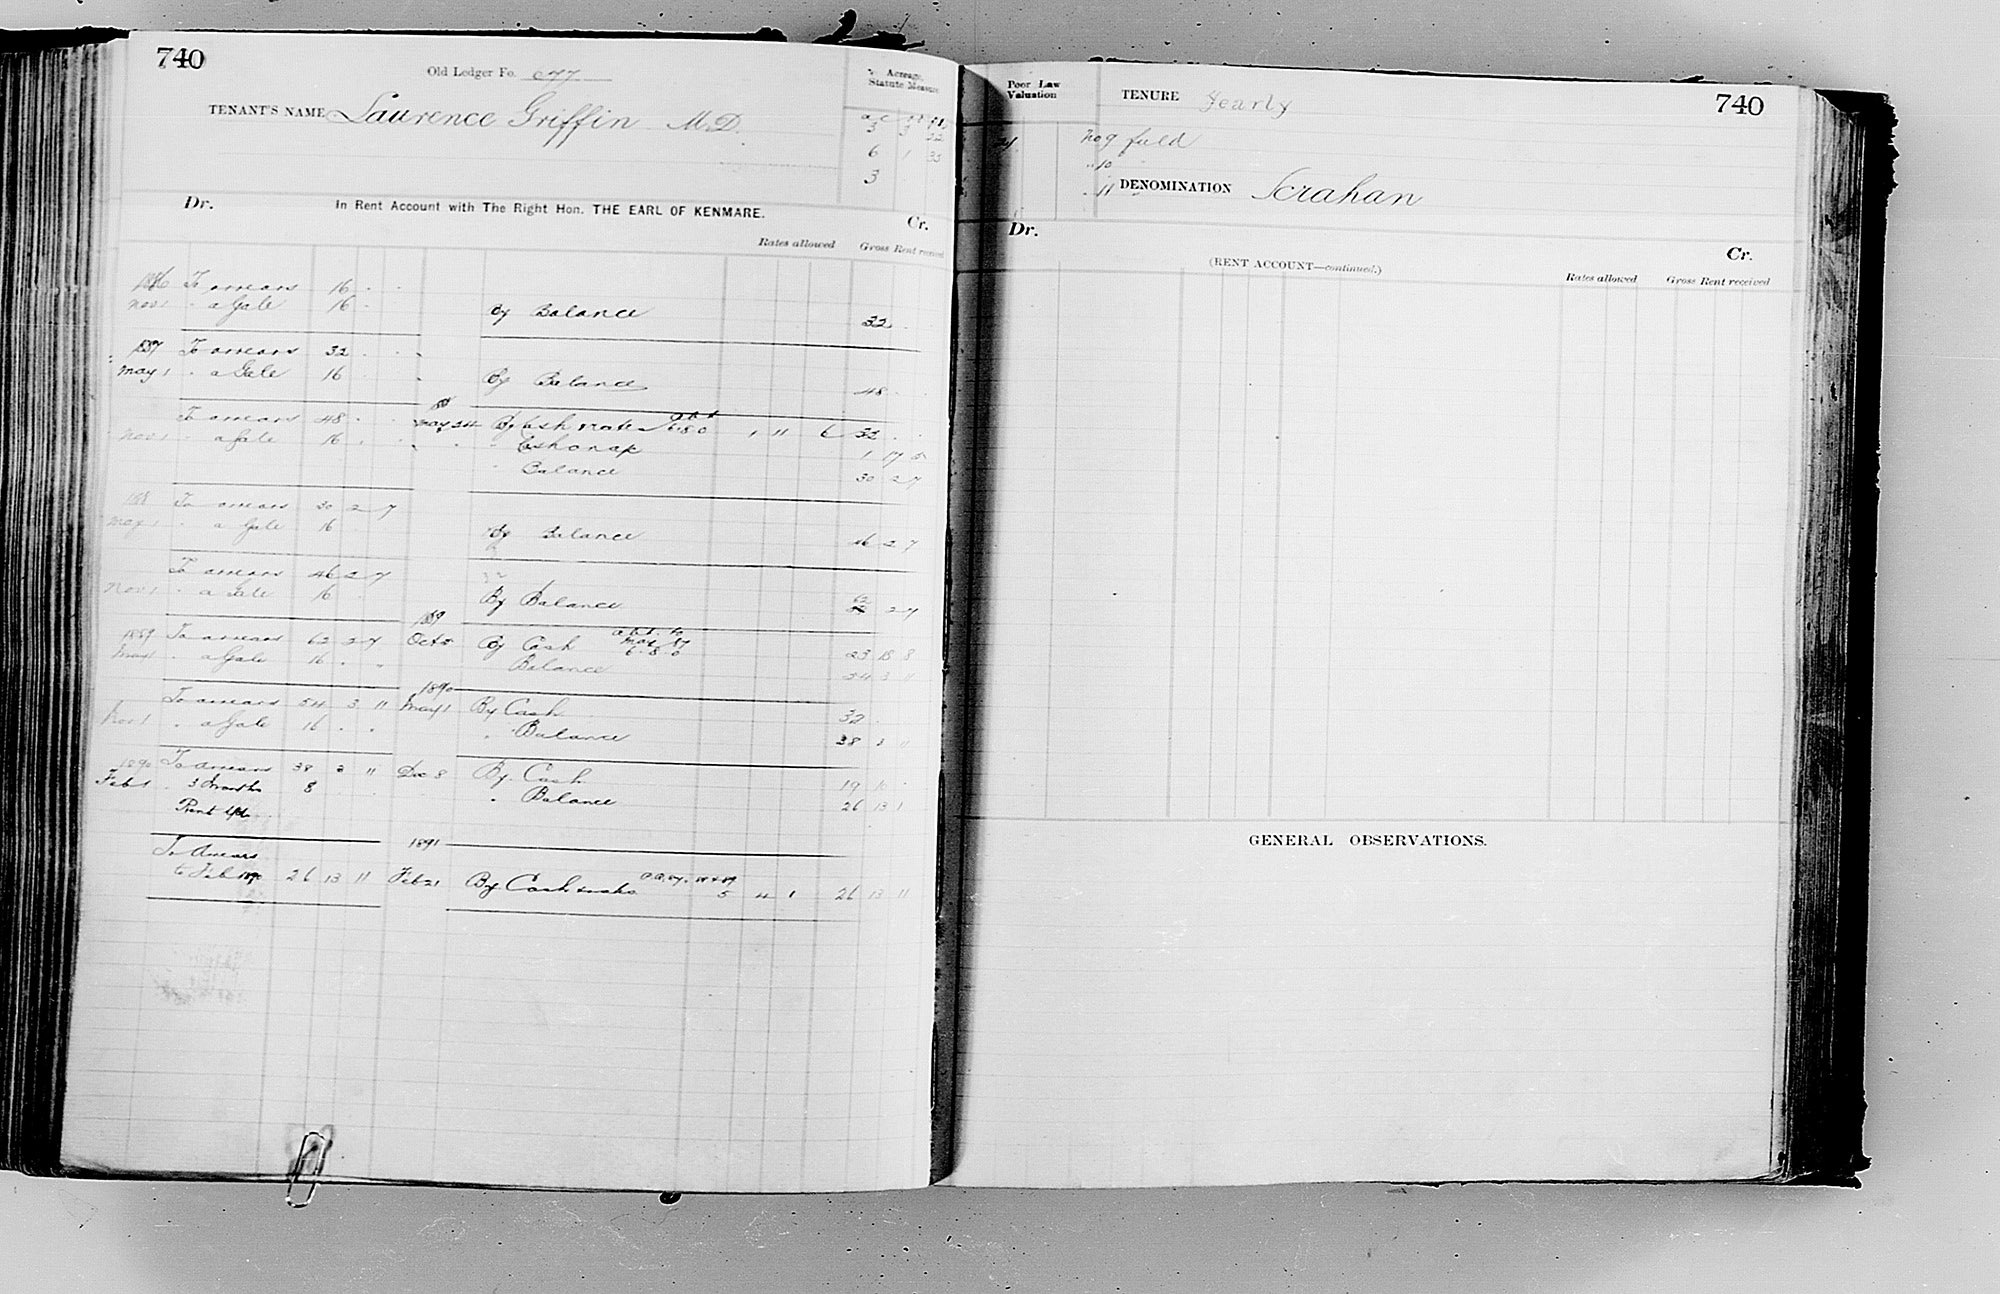 740
Old Ledger Fo. 677
Acreage.
Statute Measure
TENANT'S NAME Laurence Griffin M.D.
3 3 32
6 1 35
3
Dr.
In Rent Account with The Right Hon. THE EARL OF KENMARE.
Cr.
Rates allowed
Gross Rent received
1886 To arrears 16 . .
Nov 1 " a Gale 16 . By Balance 32 .
1887 To arrears 32 . .
May 1 " a Gale 16 . By Balance 48 . .
To arrears 48 . . May 24 By Cash 6 8 0 1 11 6 32 . .
Nov 1 " a Gale 16 . . 1 17 5
Balance 30 2 7
1888 To arrears 30 2 7
May 1 " a Gale 16 By Balance 46 2 7
To arrears 46 2 7
Nov 1 " a Gale 16 By Balance 62 2 7
1889
1889 To arrears 62 2 7 Oct 5 By Cash 6 8 0 23 18 8
May 1 " a Gale 16 . . Balance 54 3 11
1890
To arrears 54 3 11 May 1 By Cash 32 .
Nov 1 " a Gale 16 . . " Balance 38 3 11
1890 To Arrears 38 3 11 Dec 8 By Cash 19 10 .
Feb 1 " 3 Months 8 . . " Balance 26 13 11
Rent
1891
To Arrears
to Feb 1890 26 13 11 Feb 21 By Cash 5 4 1 26 13 11
Poor Law
Valuation
TENURE Yearly
740
No 9 field
" 10
" 11 DENOMINATION Scrahan
Dr.
Cr.
(RENT ACCOUNT—continued.)
Rates allowed
Gross Rent received
GENERAL OBSERVATIONS.